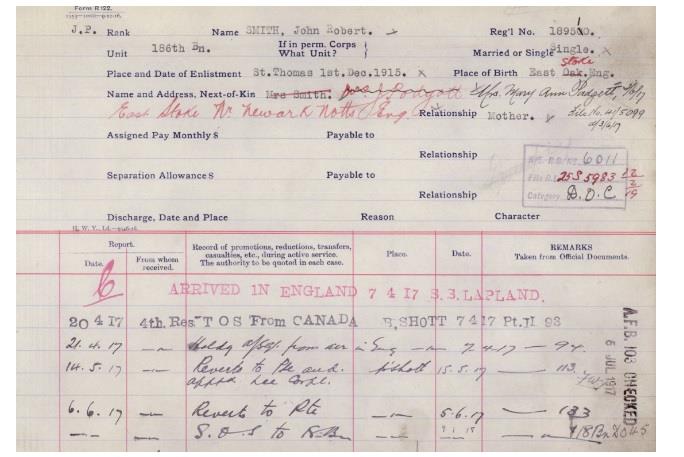 Form R 122.
J.P. Rank Name SMITH, John Robert. Reg'l No. 189500.
Unit 186th Bn. If in perm. Corps What Unit? Married or Single Single.
Place and Date of Enlistment St. Thomas 1st.Dec.1915. Place of Birth East Oak, Eng. Stoke
Name and Address, Next-of-Kin Mrs Smith. Mrs. Mary Ann Padgett,
East Stoke Nr Newark Notts Eng. Relationship Mother. File No.
Assigned Pay Monthly $ Payable to
Relationship
Separation Allowance $ Payable to
R.O. No. 6011
File R.L. 25 S 5983
Relationship
Category B.O.C
Discharge, Date and Place Reason Character
Report. Record of promotions, reductions, transfers, casualties, etc., during active service. The authority to be quoted in each case. Place. Date. REMARKS Taken from Official Documents.
Date. From whom received.
ARRIVED IN ENGLAND 7 4 17 S.S.LAPLAND.
20 4 17 4th. Res TOS From CANADA B.SHOTT 7 4 17 Pt.II 93
21.4.17 7.4.17 94
14.5.17 Reverts to Pte and. 15.5.17 113
6.6.17 Reverts to Pte 5.6.17 133
S.O.S to
A.F.B. 103 CHECKED
6 JUL 1917